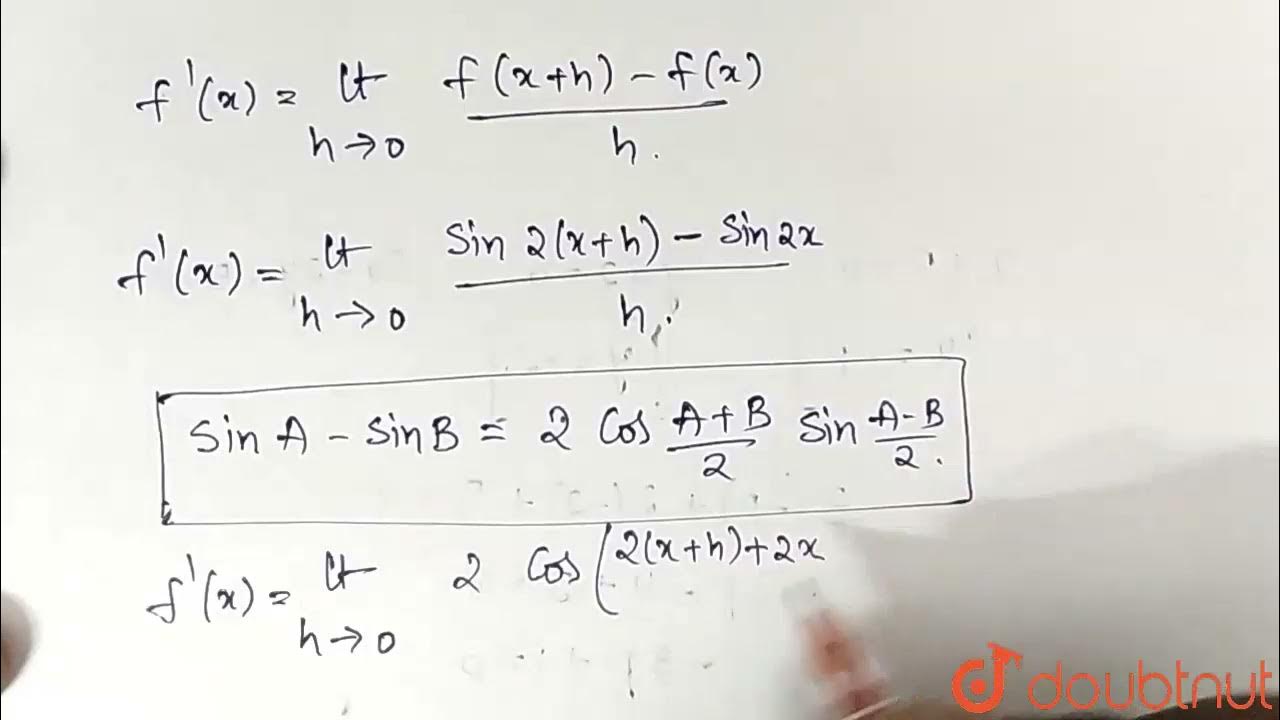 f'(x) = lt h→0 f(x+h) – f(x) / h.
f'(x) = lt h→0 Sin 2(x+h) – Sin 2x / h.
Sin A – Sin B = 2 Cos A+B/2 Sin A-B/2.
f'(x) = lt h→0 2 Cos (2(x+h)+2x
doubtnut